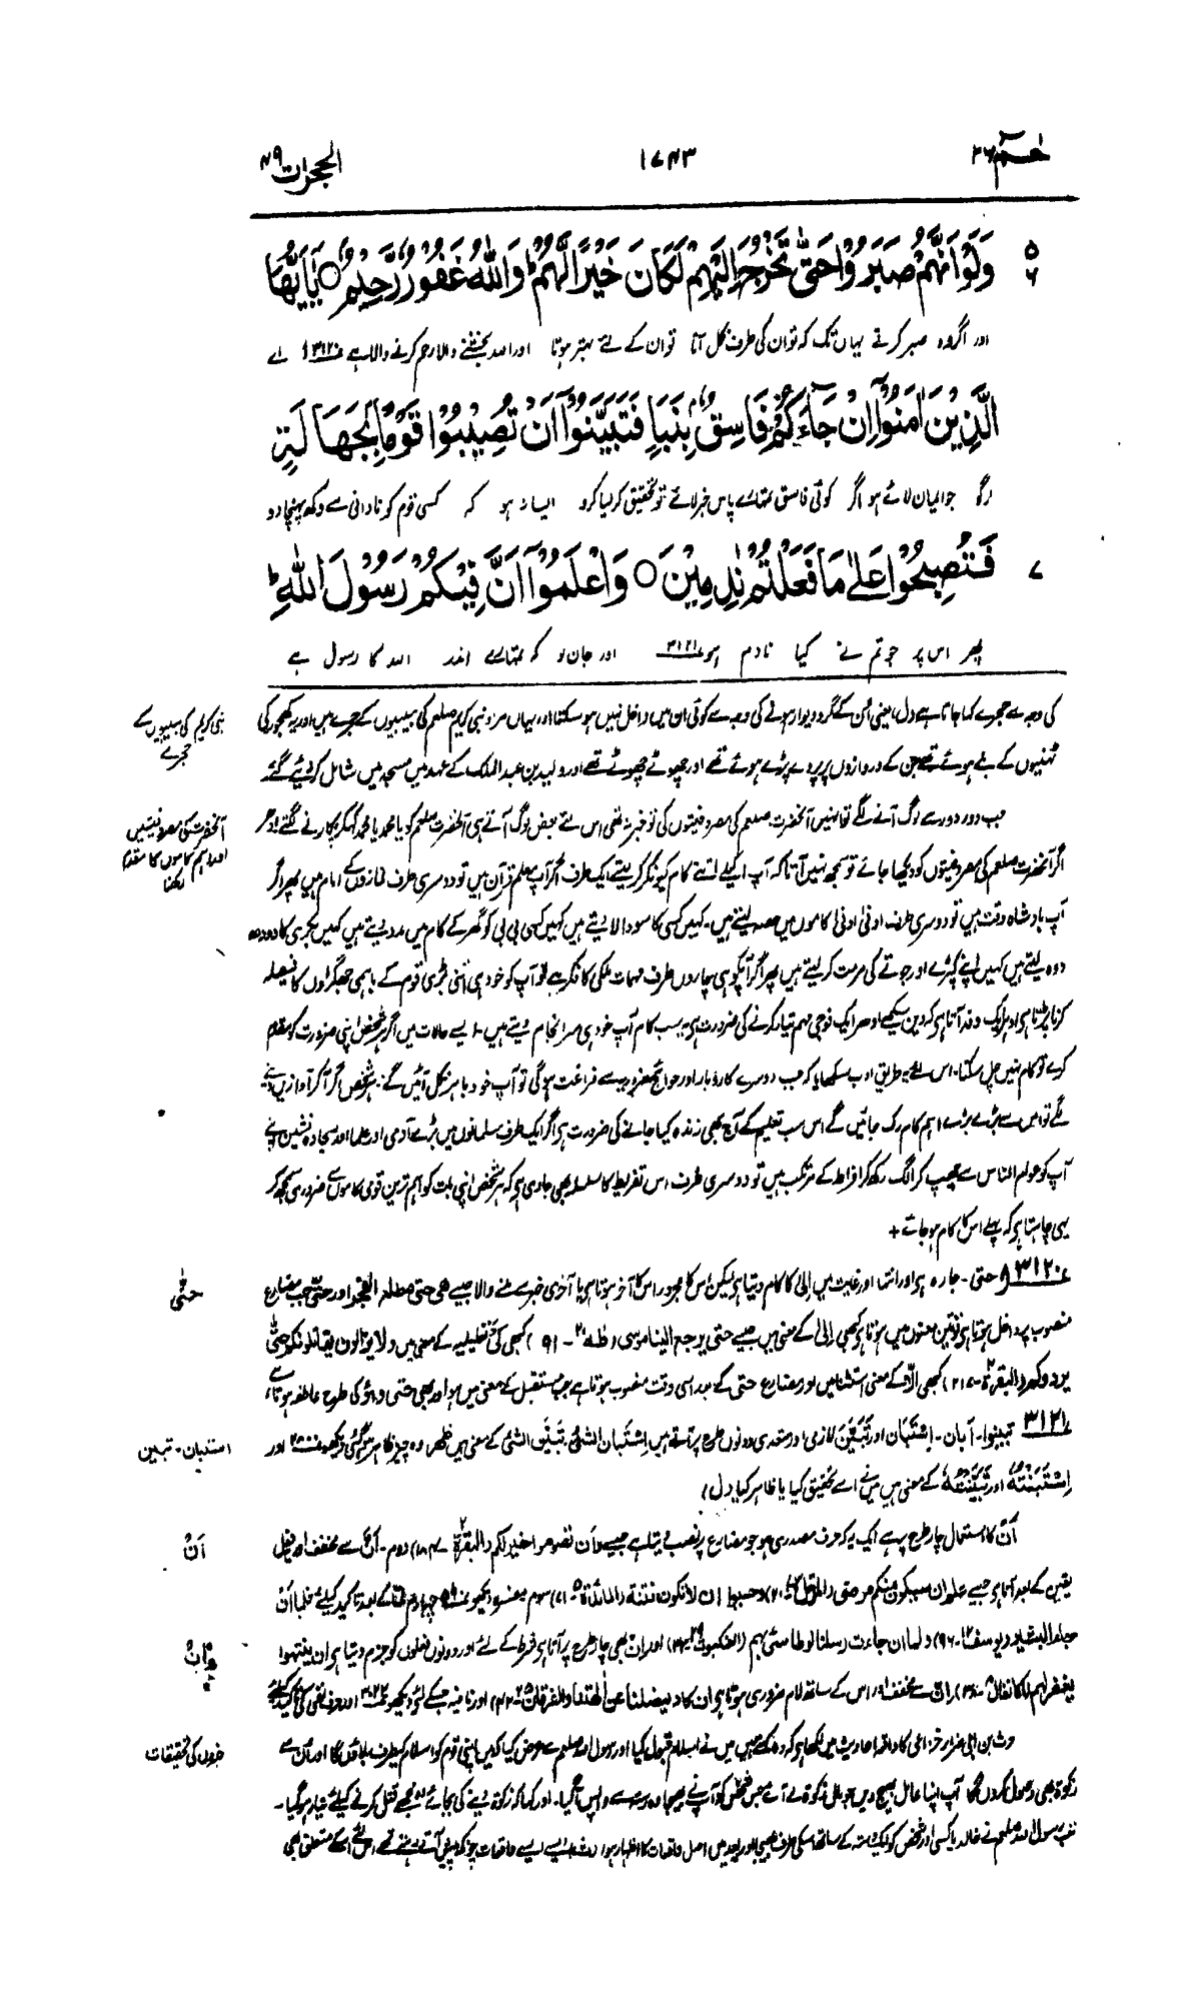 حٰمٓ ۲۶
۱۷۴۳
الحجرات ۴۹
۵
۶
وَلَوْ اَنَّهُمْ صَبَرُوْا حَتّٰى تَخْرُجَ اِلَيْهِمْ لَكَانَ خَيْرًا لَّهُمْ ؕ وَاللّٰهُ غَفُوْرٌ رَّحِيْمٌ ○ يٰۤاَيُّهَا
اور اگر وہ صبر کرتے یہاں تک کہ تو ان کی طرف نکل آتا تو ان کے لئے بہتر ہوتا اور اللہ بخشنے والا رحم کرنے والا ہے ۳۱۲۰ اے
الَّذِيْنَ اٰمَنُوْۤا اِنْ جَآءَكُمْ فَاسِقٌۢ بِنَبَاٍ فَتَبَيَّنُوْۤا اَنْ تُصِيْبُوْا قَوْمًۢا بِجَهَالَةٍ
لوگو جو ایمان لائے ہو اگر کوئی فاسق تمہارے پاس خبر لائے تو تحقیق کر لیا کرو ایسا نہ ہو کہ کسی قوم کو نادانی سے دکھ پہنچا دو
۷
فَتُصْبِحُوْا عَلٰى مَا فَعَلْتُمْ نٰدِمِيْنَ ○ وَاعْلَمُوْۤا اَنَّ فِيْكُمْ رَسُوْلَ اللّٰهِ ؕ
پھر اس پر جو تم نے کیا نادم ہو ۳۱۲۱ اور جان لو کہ تمہارے اندر اللہ کا رسول ہے
کی وجہ سے حجرے کہا جاتا ہے (ل) یعنی ان کے گرد دیوار ہونے کی وجہ سے کوئی ان میں داخل نہیں ہو سکتا اور یہاں مراد نبی کریم صلعم کی بیبیوں کے حجرے ہیں اور یہ کھجور کی
نبی کریم کی بیبیوں کے
حجرے
ٹہنیوں کے بنے ہوئے تھے جن کے دروازوں پر پردے پڑے ہوئے تھے اور چھوٹے چھوٹے تھے اور ولید بن عبدالملک کے عہد میں مسجد میں شامل کر دیئے گئے
جب دور دور سے لوگ آنے لگے تو انہیں آنحضرت صلعم کی مصروفیتوں کی تو خبر نہ تھی اس لئے بعض لوگ آتے ہی آنحضرت صلعم کو یا محمد یا محمد کہہ کر پکارنے لگتے
آنحضرت کی مصروفیتیں
اور اہم کاموں کا مقدم
رکھنا
اگر آنحضرت صلعم کی مصروفیتوں کو دیکھا جائے تو سمجھ نہیں آتا کہ آپ اکیلے اتنے کام کیونکر کر لیتے ایک طرف اگر آپ معلم قرآن ہیں تو دوسری طرف نمازوں کے امام ہیں پھر اگر
آپ بادشاہ وقت ہیں تو دوسری طرف ادنیٰ ادنیٰ کاموں میں حصہ لیتے ہیں۔ کہیں کسی کا سودا لا دیتے ہیں کہیں کسی بی بی کو گھر کے کام میں مدد دیتے ہیں کہیں بکری کا دودھ
دوہ لیتے ہیں کہیں اپنے کپڑے اور جوتے کی مرمت کر لیتے ہیں پھر اگر آپکو ہی چاروں طرف مہمات ملکی کا فکر ہے تو آپ کو خود ہی اتنی بڑی قوم کے باہمی جھگڑوں کا فیصلہ
کرنا پڑتا ہے ادھر ایک وفد آتا ہے کہ دین سیکھے ادھر ایک فوجی مہم تیار کرنے کی ضرورت ہے یہ سب کام آپ خود ہی سرانجام دیتے ہیں۔ ایسے حالات میں اگر ہر شخص اپنی ضرورت کو مقدم
کرے تو کام نہیں چل سکتا۔ اس لئے یہ طریق ادب سکھایا کہ جب دوسرے کاروبار اور حوائج ضروریہ سے فراغت ہو گی تو آپ خود باہر نکل آئیں گے۔ ہر شخص اگر آ کر آوازیں دینے
لگے تو اس سے بڑے بڑے اہم کام رک جائیں گے اس سب تعلیم کے آج بھی زندہ کیا جانے کی ضرورت ہے اگر ایک طرف مسلمانوں میں بڑے آدمی اور علما اور سجادہ نشین اپنے
آپ کو عوام الناس سے چھپ کر الگ رکھ کر افراط کے مرتکب ہیں تو دوسری طرف اس تفریط کا سلسلہ بھی جاری ہے کہ ہر شخص اپنی بات کو اہم ترین قومی کاموں سے ضروری سمجھ کر
یہی چاہتا ہے کہ پہلے اس کا کام ہو جائے +
حتّٰی
۳۱۲۰ حتی۔ جارہ ہے اور انتہا اور غایت میں الیٰ کا کام دیتا ہے لیکن اس کا مجرور اس کا آخر ہوتا ہے یا آخری خبر سے ملنے والا جیسے ھی حتی مطلع الفجر اور حتّٰی جب مضارع
منصوب پر داخل ہوتا ہے تو تین معنوں میں ہوتا ہے کبھی الیٰ کے معنی میں جیسے حتی یرجع الینا موسی (طٰہٰ ۲۰-۹۱) کبھی کَیْ تعلیلیہ کے معنی میں ولا یزالون یقاتلونکم حتّٰی
یردوکم (البقرۃ ۲-۲۱۷) کبھی اِلّا کے معنی استثنا میں اور مضارع حتی کے بعد اسی وقت منصوب ہوتا ہے جب مستقبل کے معنی میں ہو اور کبھی حتی واؤ کی طرح عاطفہ ہوتا ہے
استبان۔ تبین
۳۱۲۱ تبینوا۔ اَبَانَ۔ اِسْتَبَانَ اور تَبَیَّنَ لازمی اور متعدی دونوں طرح پر آتے ہیں اِسْتَبَانَ الشَّیْءُ تَبَیَّنَ الشَّیْءُ کے معنی ہیں ظَھَرَ وہ چیز ظاہر ہو گئی اور
اِسْتَبَنْتُهٗ اور تَبَیَّنْتُهٗ کے معنی ہیں میں نے اسے تحقیق کیا یا ظاہر کیا (ل)
اَنْ
اَنْ کا استعمال چار طرح پر ہے ایک یہ کہ حرف مصدری ہو جو مضارع پر نصب دیتا ہے جیسے وان تصوموا خیر لکم (البقرۃ ۲-۱۸۴) دوم۔ اَنَّ سے مخفف اور فعل
یقین کے بعد آتا ہے جیسے علم ان سیکون منکم مرضی (المزمل ۷۳-۲۰) وحسبوا ان لا تکون فتنة (المائدۃ ۵-۷۱) سوم مفسرہ دیکھو چہارم لَمَّا کے بعد تاکید کیلئے فلما اَنْ
اِنْ
جاء البشیر (یوسف ۱۲-۹۶) ولما ان جاءت رسلنا لوطا سیٔ بہم (العنکبوت ۲۹-۳۳) اور اِنْ بھی چار طرح پر آتا ہے شرط کے لئے اور دونوں فعلوں کو جزم دیتا ہے ان ینتھوا
یغفر لہم (الانفال ۸-۳۸) اِنَّ سے مخفف اور اس کے ساتھ لام ضروری ہوتا ہے ان کاد لیضلنا عن اٰلھتنا (الفرقان ۲۵-۴۲) اور نافیہ جسکے لئے دیکھو
خبروں کی تحقیقات
حارث بن ابی ضرار خزاعی کا واقعہ احادیث میں لکھا ہے کہ وہ کہتے ہیں میں نے اسلام قبول کیا اور رسول اللہ صلعم سے عرض کیا کہ میں اپنی قوم کو اسلام کیطرف بلاؤں گا اور ان سے
زکوٰۃ بھی وصول کروں گا آپ اپنا عامل بھیج دیں جو مال زکوٰۃ لے آئے جس شخص کو آپ نے بھیجا وہ رستہ سے واپس آ گیا۔ اور کہا کہ زکوٰۃ دینے کی بجائے وہ مجھے قتل کرنے کیلئے تیار ہو گیا۔
تب رسول اللہ صلعم نے خالد یا کسی اور شخص کو ایک دستہ کے ساتھ اسکی طرف بھیجا اور بعد میں اصل واقعات کا اظہار ہوا ایسے واقعات چونکہ پیش آتے رہتے تھے اس لئے اسکے متعلق بھی